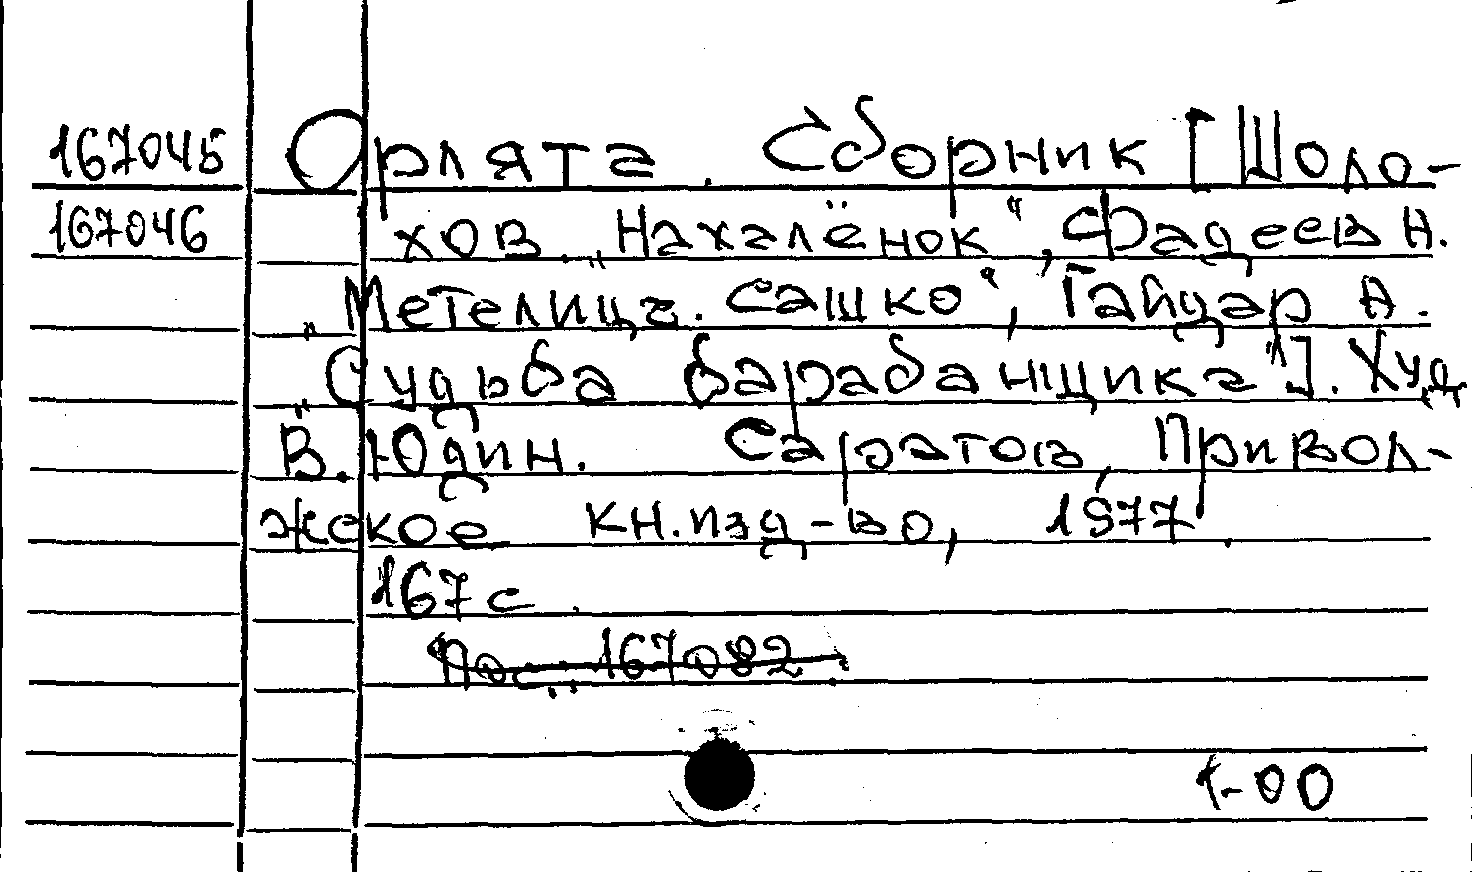 167045 Орлята. Сборник [Шоло-
167046 хов. „Нахалёнок“, Фадеев А.
„Метелица. Сашко“, Гайдар А.
„Судьба барабанщика“]. Худ
В. Юдин. Саратов, Привол-
жское кн. изд-во, 1977.
167 с.
Пос. 167082.
1-00